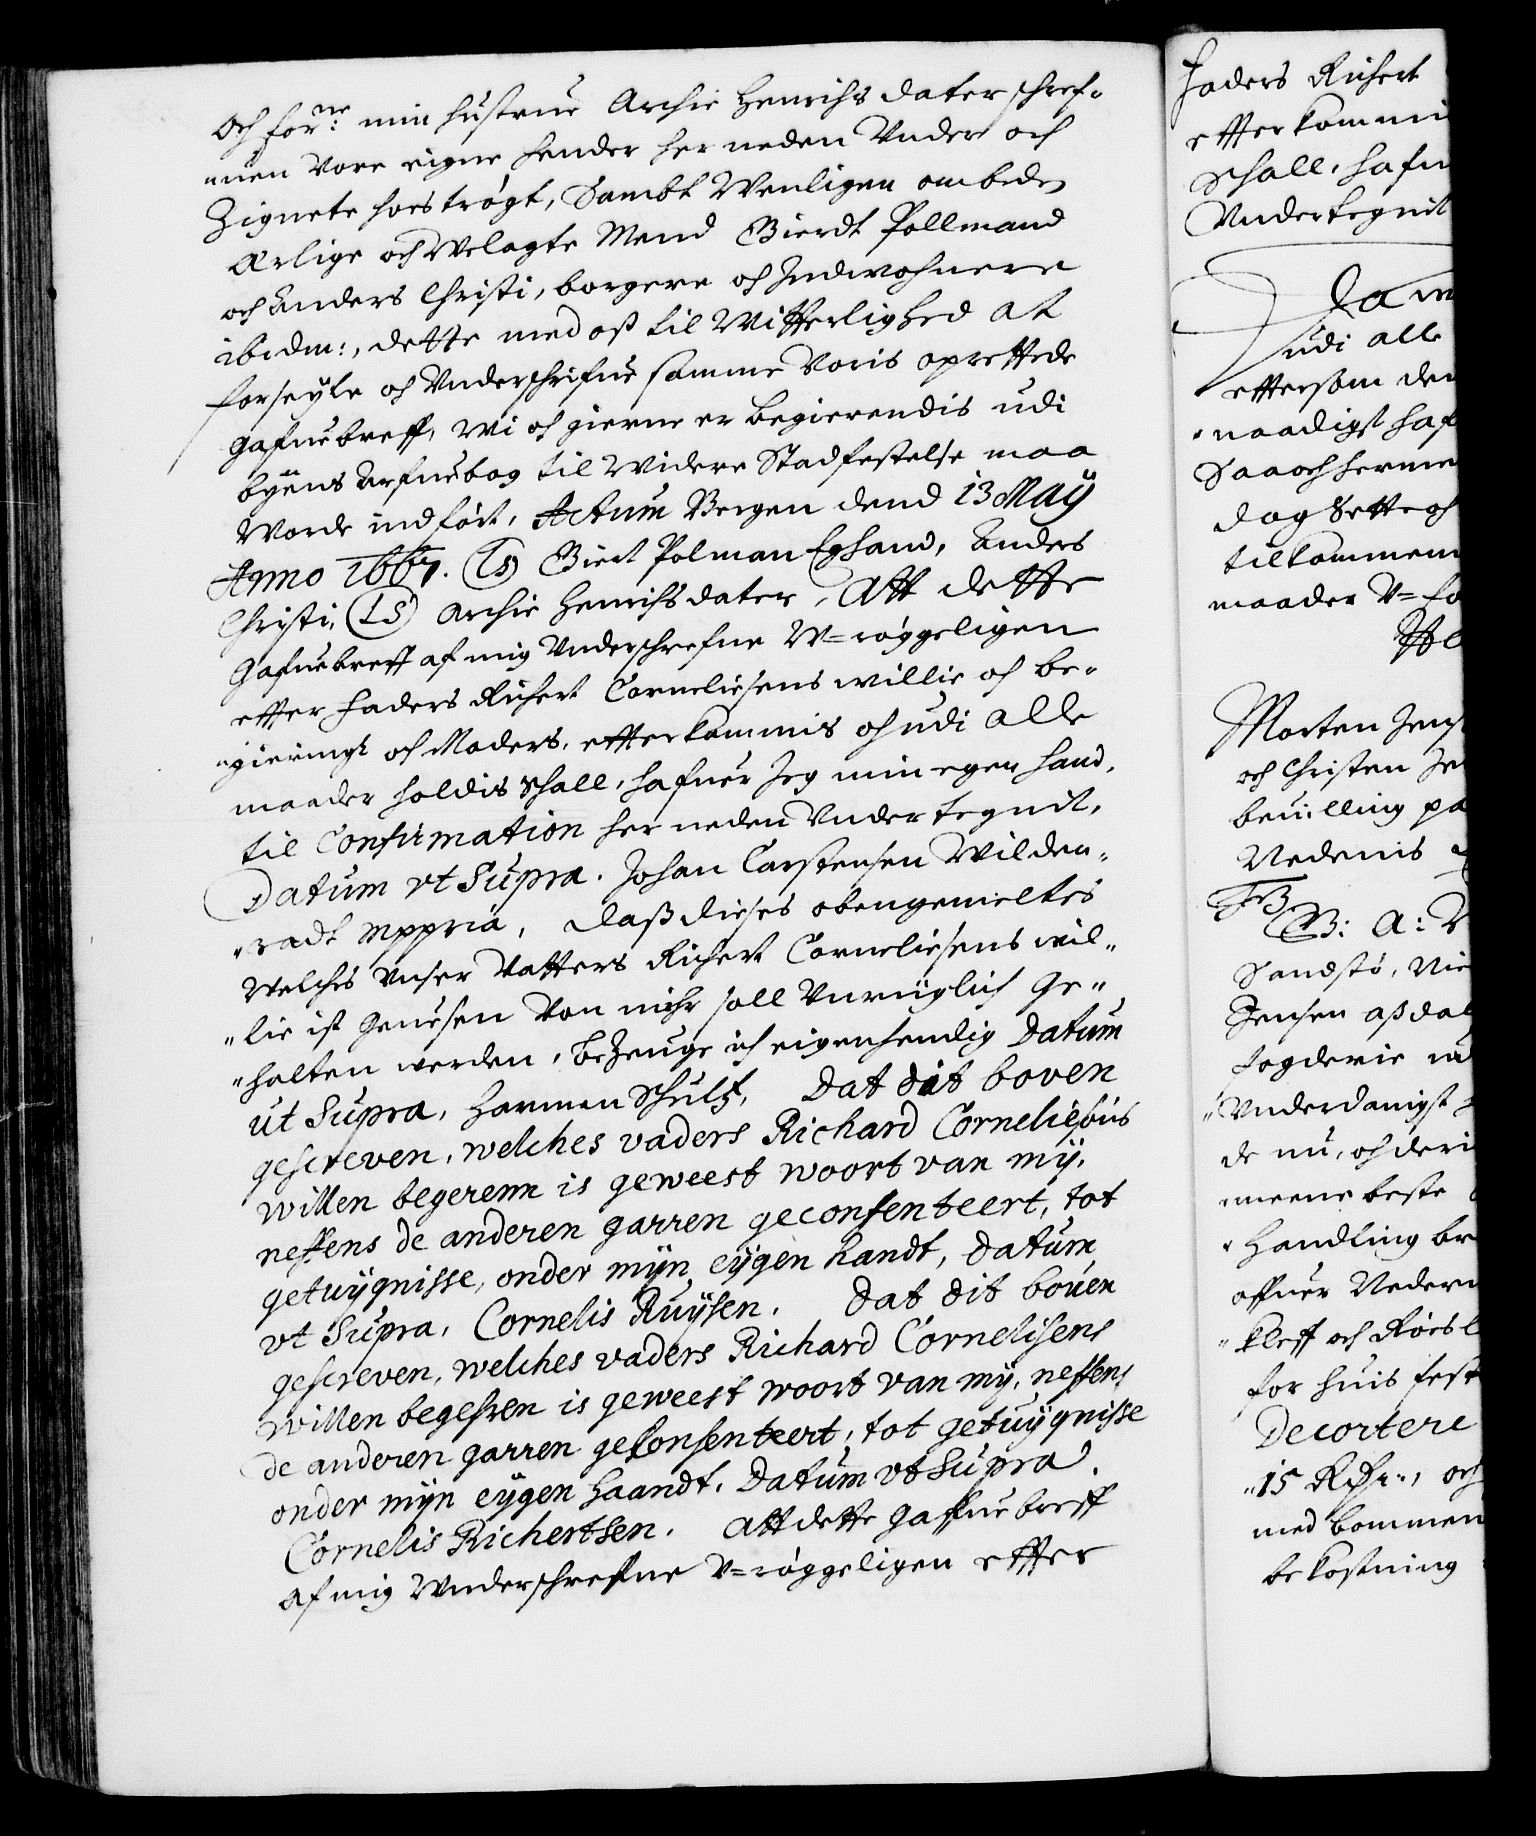 och forne: min hustrue Archie Henrichs dater schref-
"uen Vore eigne hender her neden Vnder och
Zignete hoestrøgt, Sambt Wenligen ombede
Ærlige och Welagte Mend Gierdt Pollmand
och Anders Christi, borgere och Indwohnere
ibidm:, dette med oss til Witterlighed at
forseyle och Vnderschrifue samme Voris oprettede
gafuebreff, Wi och gierne er begierendis udi
byens Arfuebog til Widere Stadfestelse maa
Worde indført, Actum Bergen dend 13 Maÿ
Anno 1667. (LS) Giert Polman Eghand, Anders
Christi, (LS) Archie Henrichsdater, Att dette
gafuebreff af mig Vnderschrefne W=røggeligen
etter faders Richert Corneliesens willie och be-
"gieringh och Moders, etterkommis och udi alle
maader holdis schall, hafuer Jeg min egen hand,
til Confirmation her neden Vndertegnit,
Datum vt Supra. Johan Carstensen Wilden-
"radt mppria, Dass dieses obengemeltes
Welches Vnser Vatters Richert Corneliesens wil-
"lie ist Geuesen Von mihr soll Vnrüglich Ge-
"halten werden, bezeuge ich eigenhendig Datum
ut Supra, Harmen Schultz, Dat dit boven
gescreven, welches vaders Richard Corneliesus
willen begerenn is geweest woort van mÿ,
neffens de anderen garren geconsenteert, tot
getuÿgnisse, onder mÿn eÿgen handt, Datum
vt Supra, Cornelis Ruÿsen. Dat dit bouen
gescreven, welches vaders Richard Cornelisens
willen begehren is geweest woort van mÿ, neffens
de anderen garren gekonsenteert, tot getuÿgnisse
onder mÿn eÿgen haandt, Datum vt Supra.
Cornelis Richertsen. Att dette gaffuebreff
af mig Wnderschrefne V=røggeligen etter
faders Richert
etterkommi
Schall, hafu
Vndertegnit
udi alle
ettersom den
"naadigst haf
Saa och herme
dag Sette och
tilkommen
maader V= fo
Morten Jens
och Christen Je
beuilling pa
Nedenis
B: A:
Sandstø, Nie
Jensen assdal
fogderie
"Vnderdanigst
de nu, och deri
meene beste
"Handling br
offuer Nedern
"Kleff och Roesl
for huis fest
Decortere
"15 Rdr:, och
med bommen
bekostning